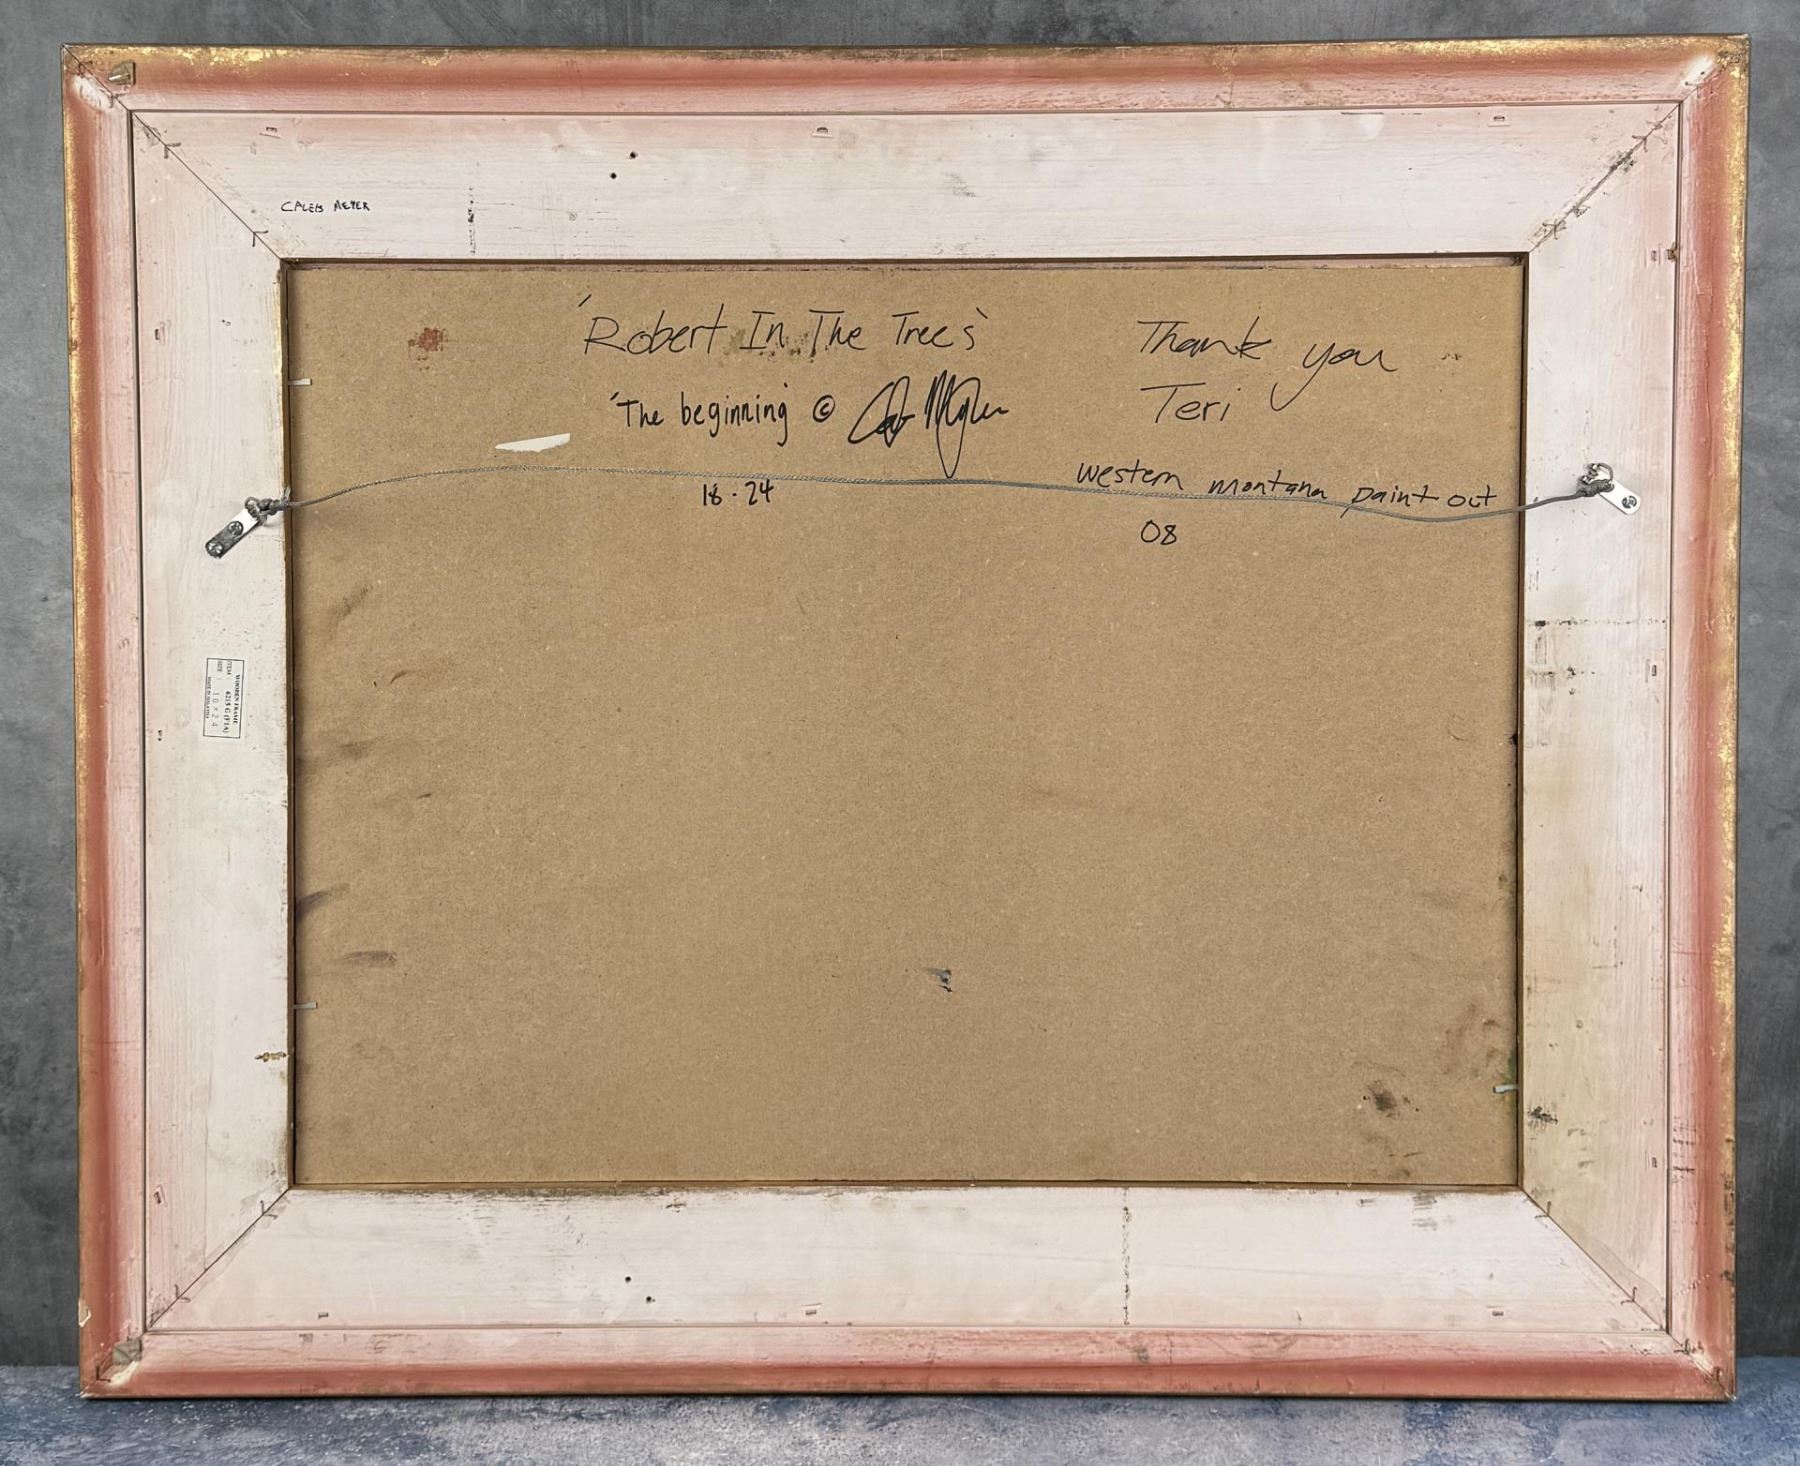 CALEB MEYER
'Robert In The Trees'
'The beginning' ©
18 · 24
Thank you
Teri
western montana paint out
08
WOODEN FRAME
ITEM : 6215 G (F1A)
SIZE : 18 × 24